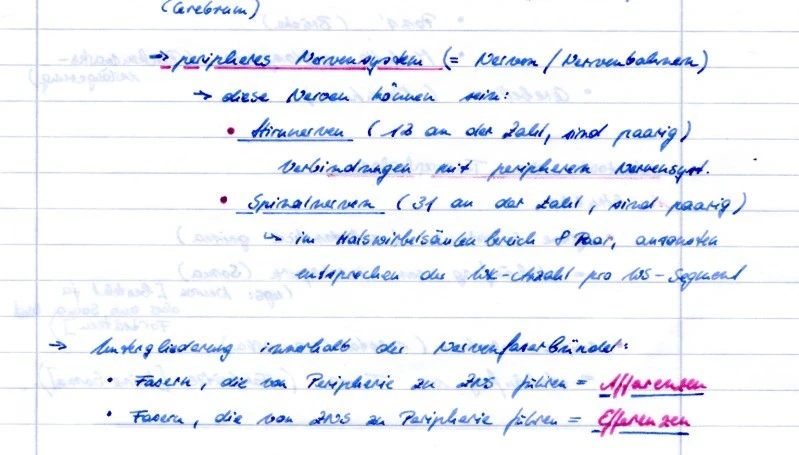 (Cerebrum)
→ peripheres Nervensystem (= Nerven / Nervenbahnen)
→ diese Nerven können sein:
• Hirnnerven (12 an der Zahl, sind paarig)
Verbindungen mit peripherem Nervensyst.
• Spinalnerven (31 an der Zahl, sind paarig)
↳ im Halswirbelsäulenbereich 8 Paar, ansonsten
entsprechen der WK-Anzahl pro WS-Segment
→ Untergliederung innerhalb der Nervenfaserbündel:
• Fasern, die von Peripherie zu ZNS führen = Afferenzen
• Fasern, die von ZNS zu Peripherie führen = Efferenzen